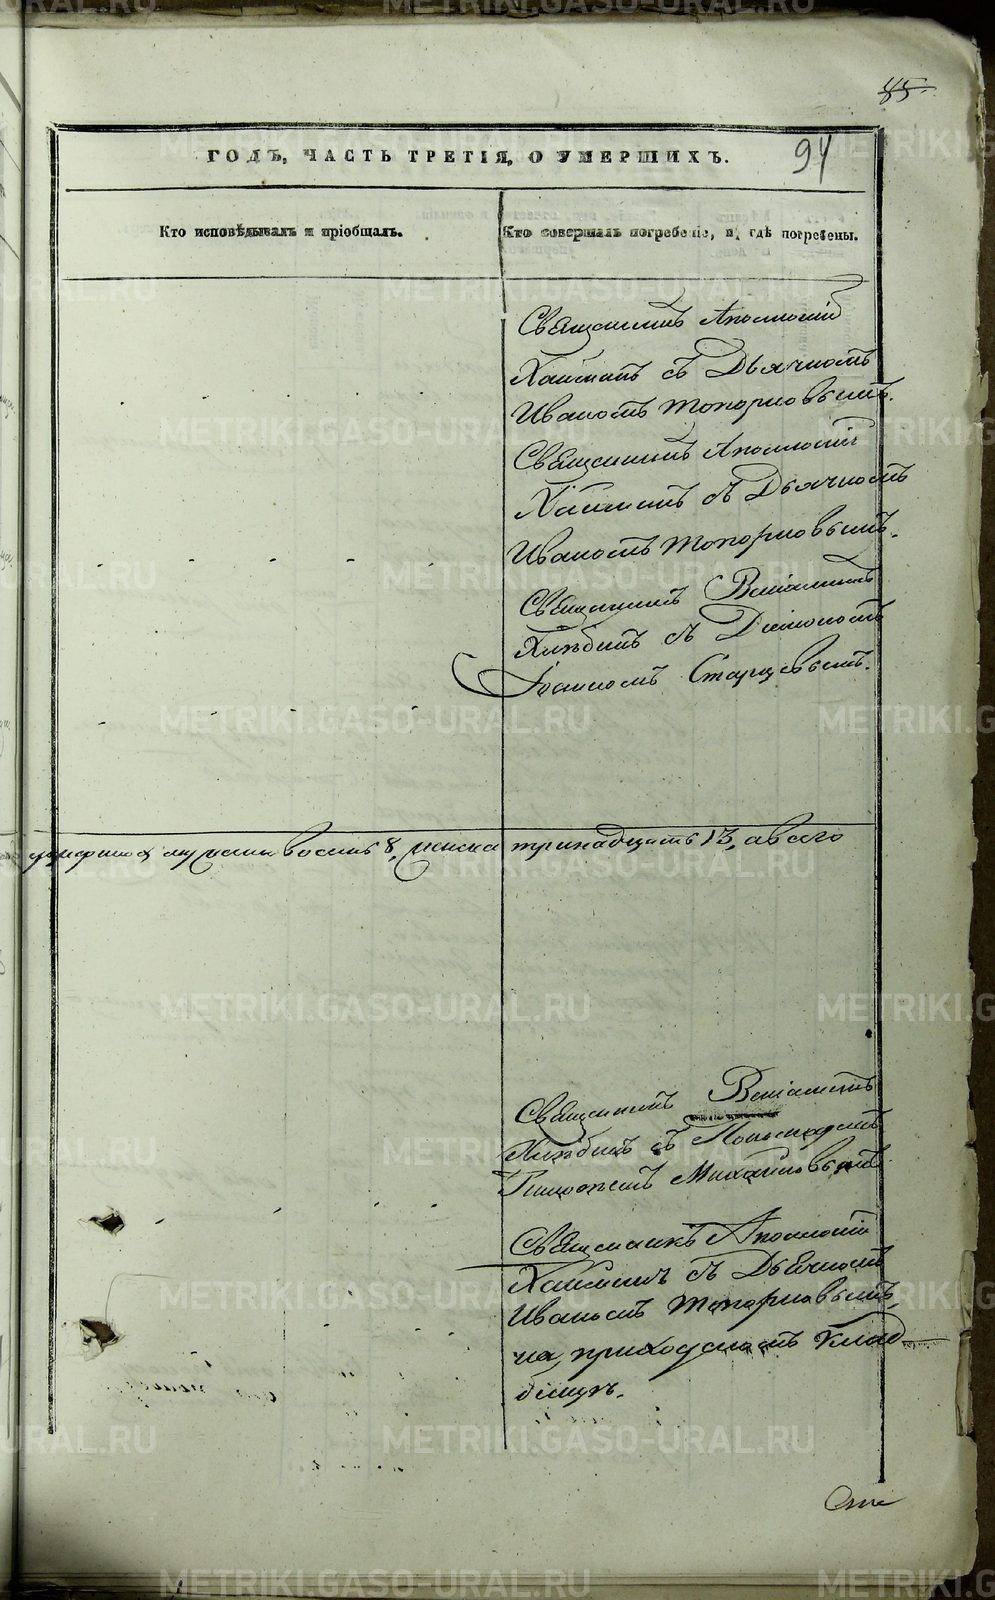 85
94
ГОДЪ, ЧАСТЬ ТРЕТІЯ, О УМЕРШИХЪ.
Кто исповѣдывалъ и пріобщалъ.
Кто совершалъ погребеніе, и гдѣ погребены.
Священникъ Аполлоній
съ Дьячкомъ
Иваномъ Топорковымъ.
Священникъ Аполлоній
съ Дьячкомъ
Иваномъ Топорковымъ.
Священникъ Веніаминъ
Хлѣбинъ съ Діакономъ
Іоанномъ Старцевымъ.
восемь 8, женска тринадцать 13, а всего
Священникъ Веніаминъ
Хлѣбинъ съ Пономаремъ
Тимофеемъ Михайловымъ
Священникъ Аполлоній
съ Дьячкомъ
Иваномъ Топорковымъ,
на приходскомъ клад-
бищѣ.
METRIKI.GASO-URAL.RU